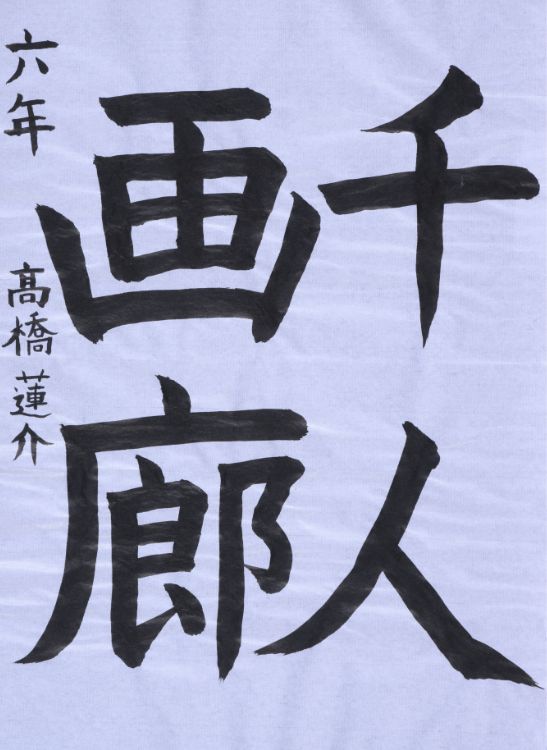 千人
画廊
六年 髙橋蓮介